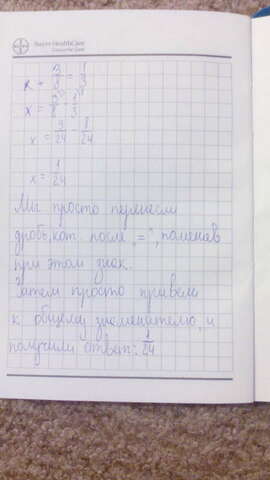 Bayer HealthCare
x + 3/8 = 1/3
x = 3/8 - 1/3
x = 9/24 - 8/24
x = 1/24
Мы просто перенесли
дробь, кот. после „=“, поменяв
при этом знак.
Затем просто привели
к общему знаменателю, и
получили ответ: 1/24